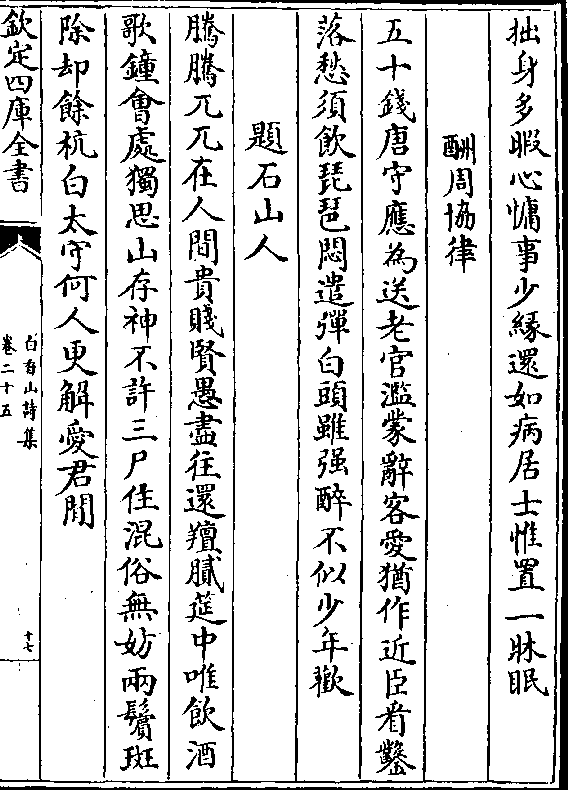 拙身多暇心慵事少緣還如病居士惟置一牀眠
酬周協律
五十錢唐守應為送老官濫蒙辭客愛猶作近臣看鑿
落愁須飲琵琶悶遣彈白頭雖强醉不似少年歡
題石山人
騰騰兀兀在人間貴賤賢愚盡往還羶膩筵中唯飲酒
歌鐘會處獨思山存神不許三尸住混俗無妨兩鬢斑
除却餘杭白太守何人更解愛君閒
欽定四庫全書
白香山詩集
卷二十五
十七